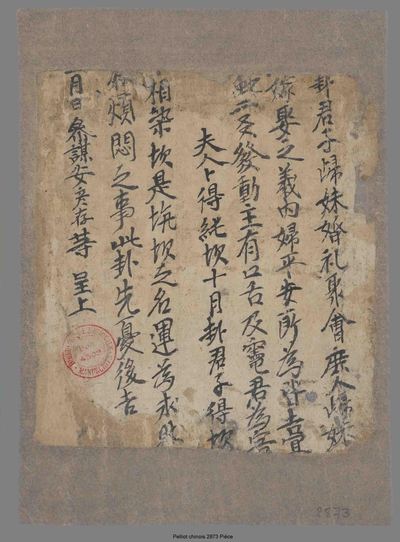 卦君子歸妹婚礼聚會庶人歸妹
嫁娶之義內婦平安所為皆吉
二爻發動主有口舌及竈君為害
夫人卜得純坎十月卦君子得坎
相築坎是坑坎之名運為求
煩悶之事此卦先憂後吉
月日參謀安彥存等 呈上
2873
Pelliot chinois 2873 Pièce